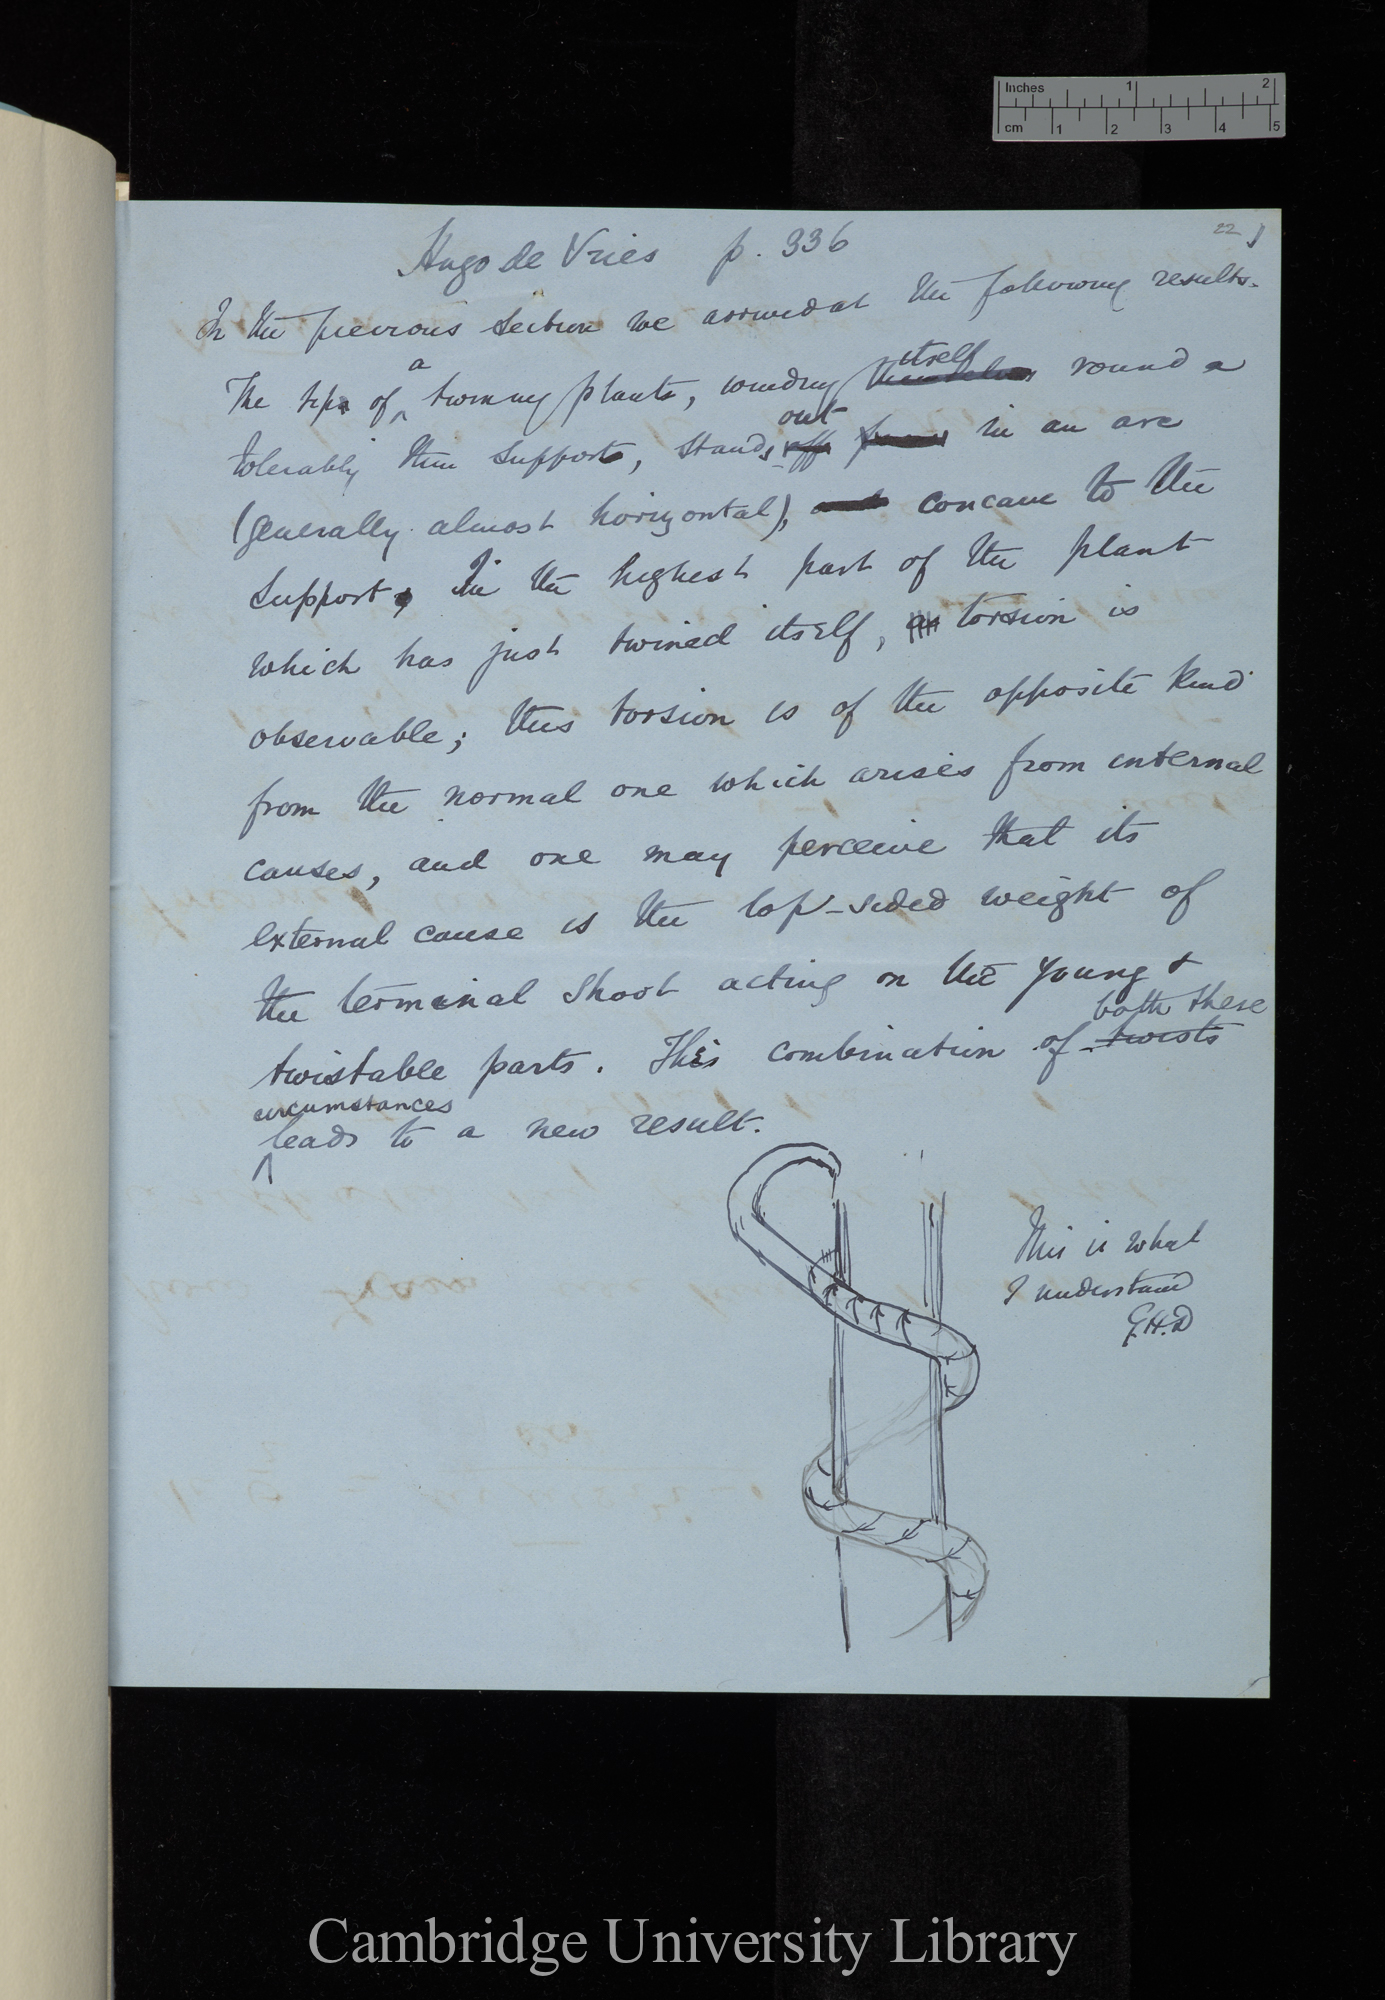 Inches 1 2
cm 1 2 3 4 5
22
Hugo de Vries p. 336
In the previous section we arrived at the following results.
a itself
The tip of twining plants, winding themselves round a
out
tolerably thin support, stands off from in an arc
(generally almost horizontal), and concave to the
support, In the highest part of the plant
which has just twined itself, torsion is
observable; this torsion is of the opposite kind
from the normal one which arises from internal
causes, and one may perceive that its
external cause is the lop-sided weight of
the terminal shoot acting on the young &
both these
twistable parts. This combination of twists
circumstances
leads to a new result.
This is what
I understand
G.H.D
Cambridge University Library